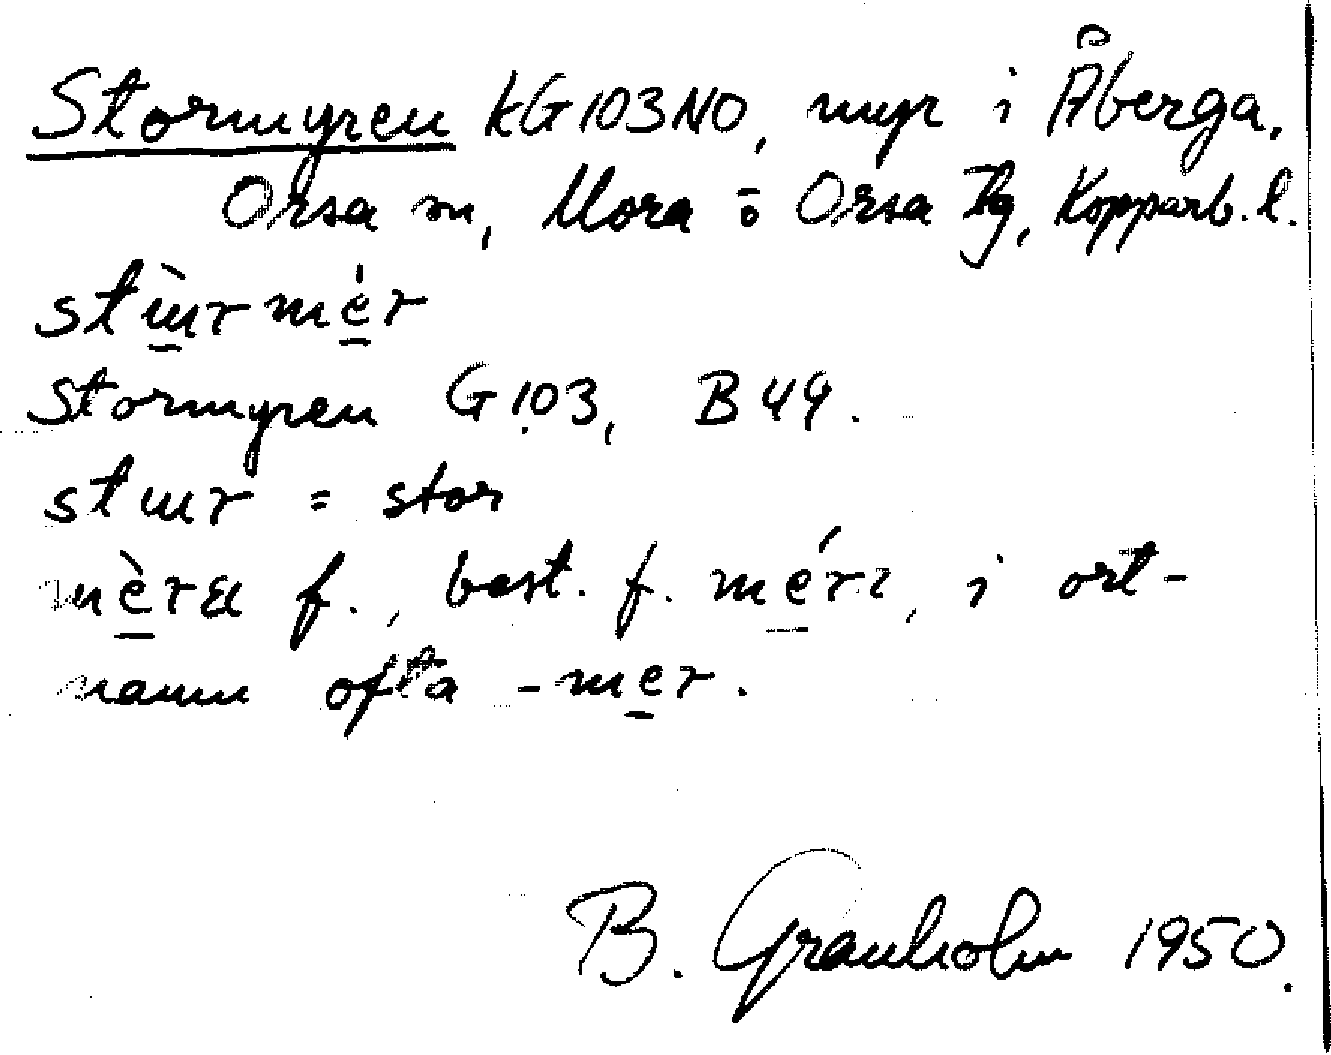 Stormyren KG103NO, myr i Åberga,
Orsa sn, Mora o Orsa Tg, Kopparb. l.
stɯ̀rmér
Stormyren G103, B49.
stɯr = stor
mèra f., best. f. mérɩ, i ort-
namn ofta -mer.
B. Granholm 1950.